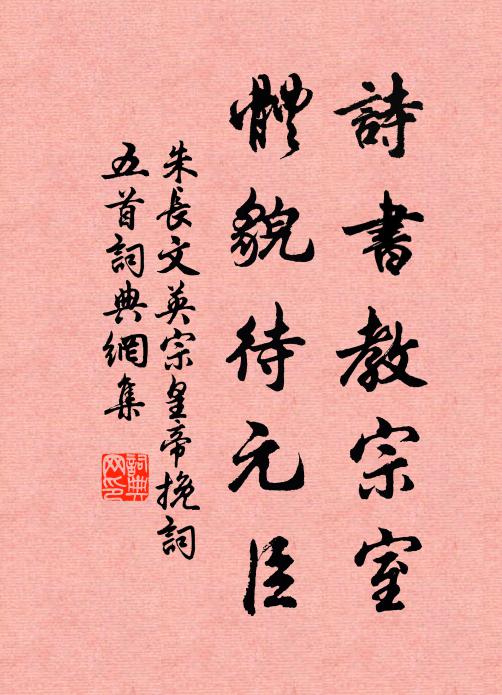 詩書教宗室
體貌待元臣
朱長文英宗皇帝挽詞
五首詞典網集
詞典网印